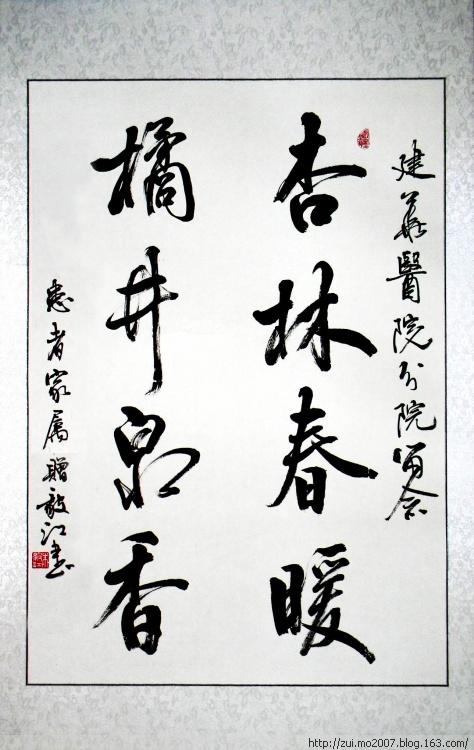 建華醫院分院留念
杏林春暖
橘井泉香
患者家属贈毅江书
http://zui.mo2007.blog.163.com/